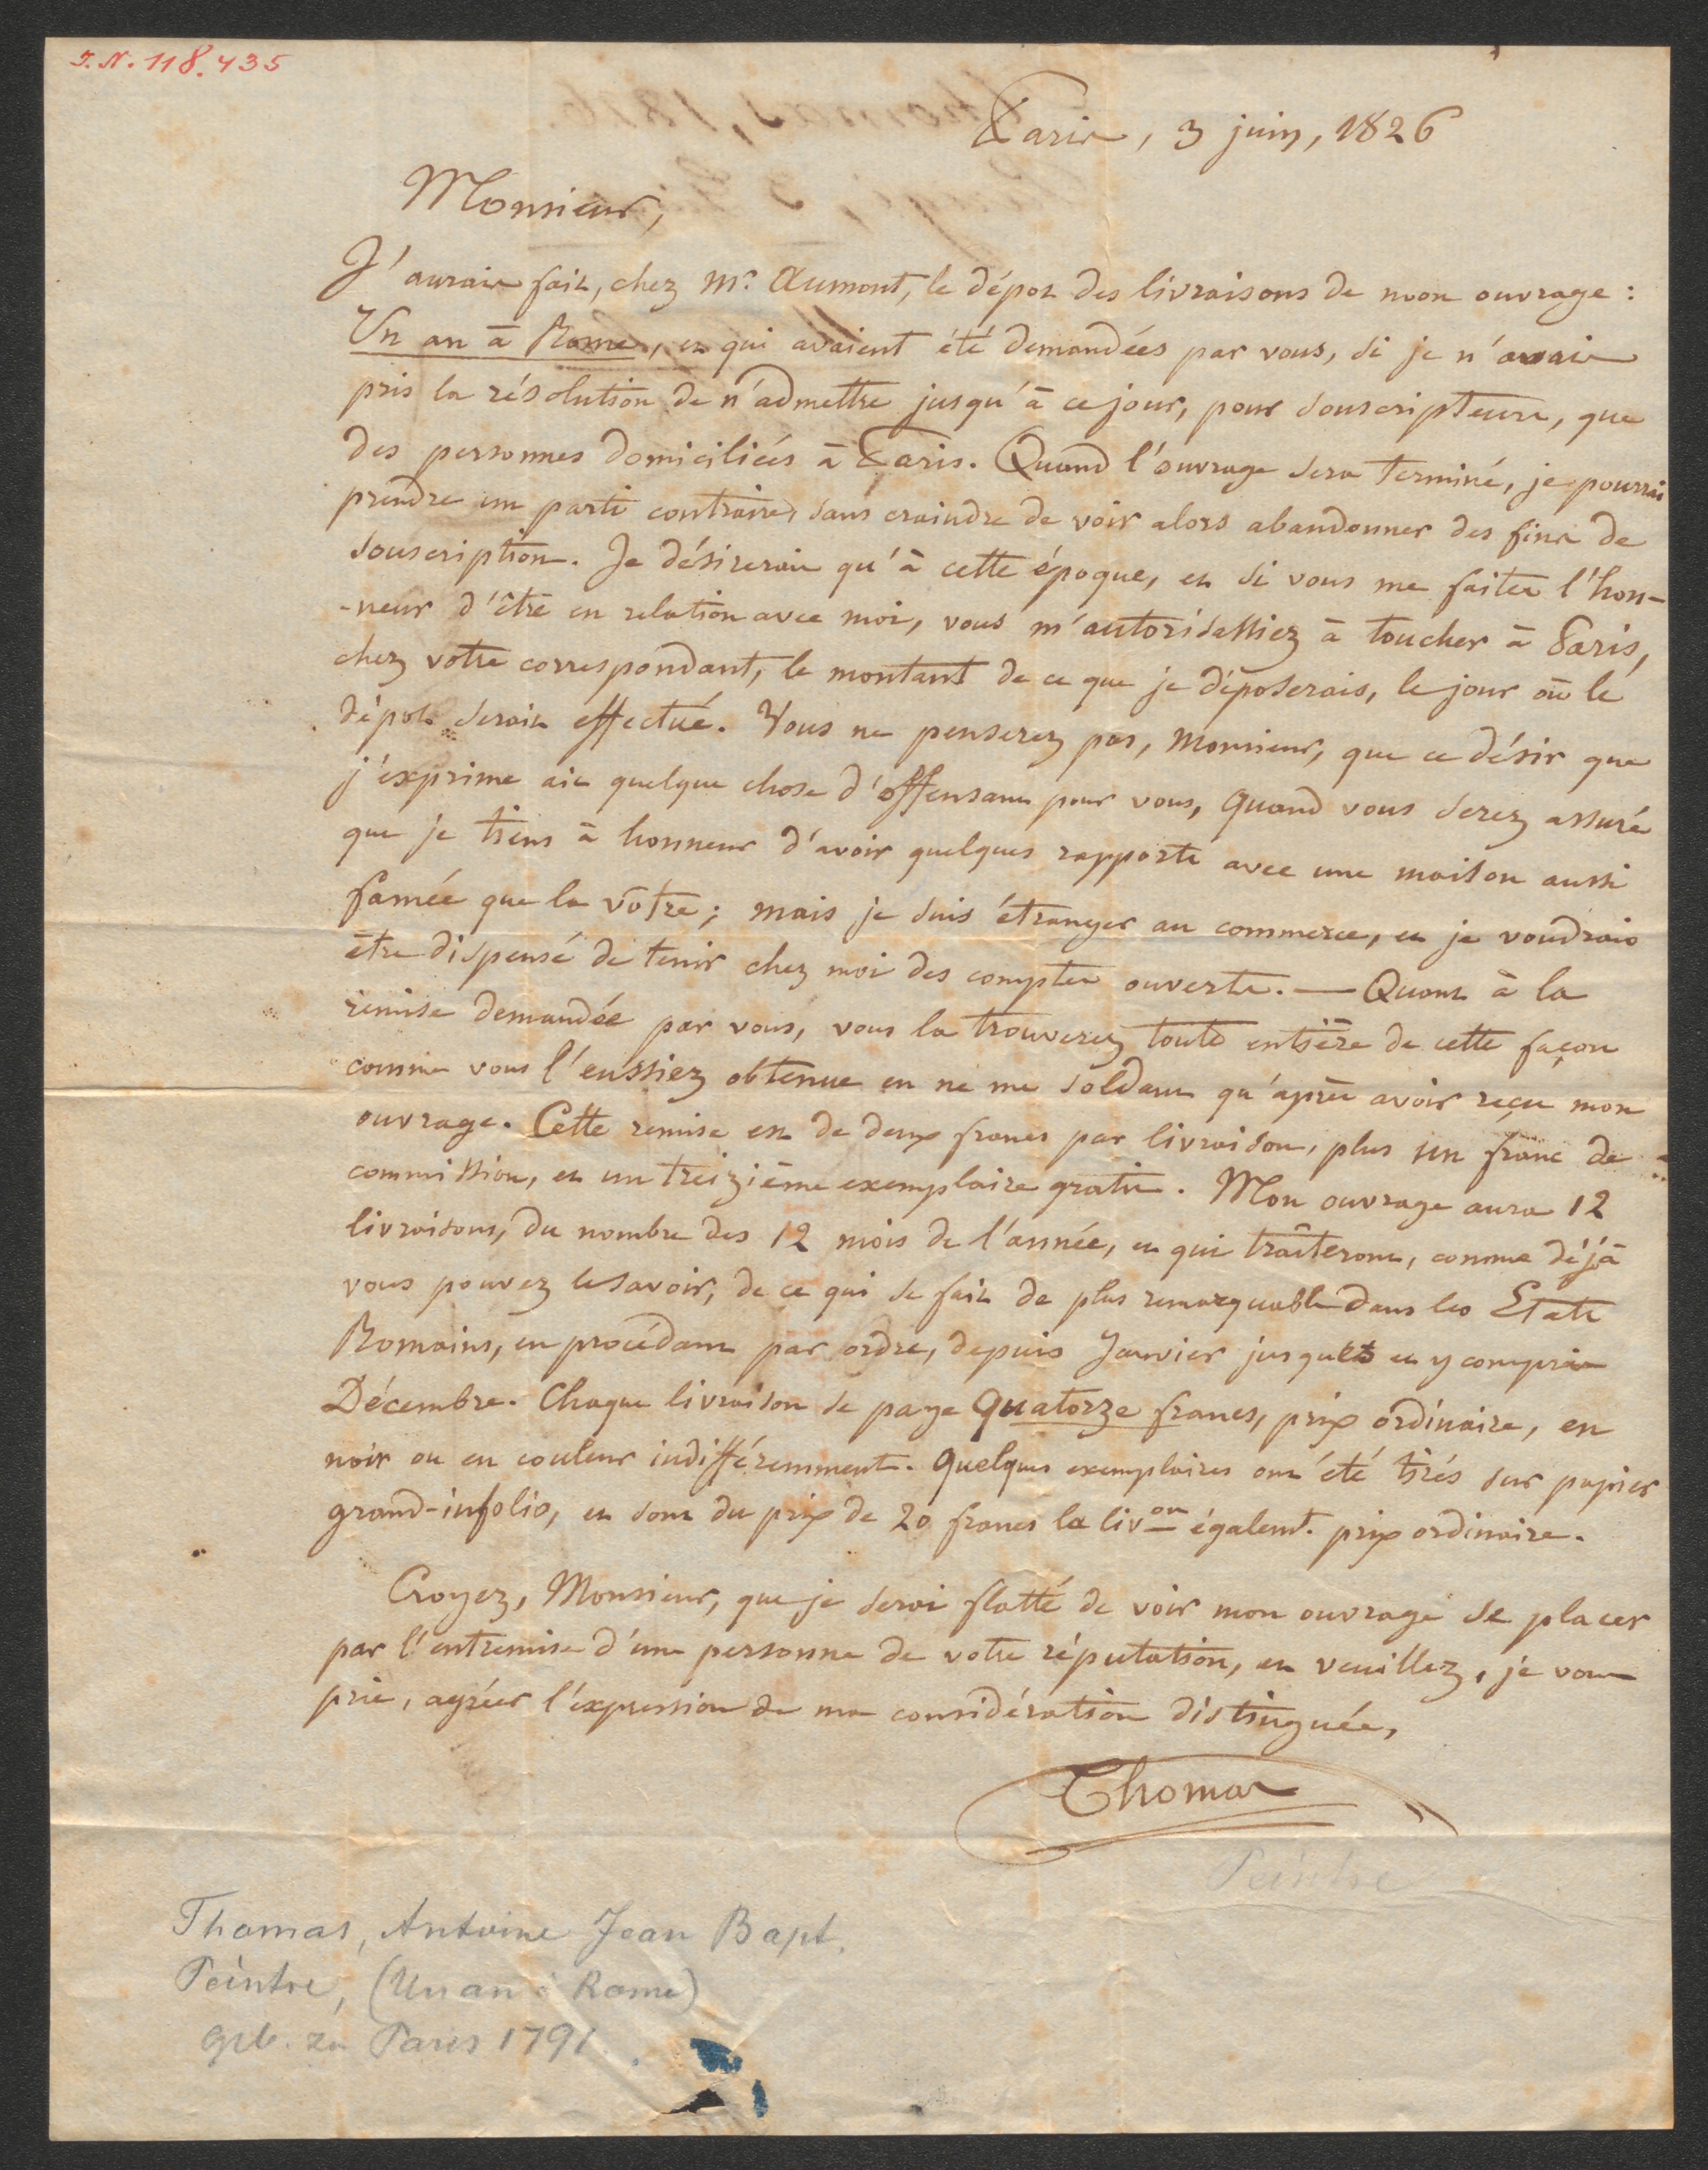 I.N. 118.435
Paris, 3 juin, 1826
Monsieur,
J'aurais fait, chez Mr. Aumont, le dépot des livraisons de mon ouvrage :
Un an à Rome, et qui avaient été demandées par vous, si je n'avais
pris la résolution de n'admettre jusqu'à ce jour, pour souscripteurs, que
des personnes domiciliées à Paris. Quand l'ouvrage sera terminé, je pourrai
prendre un parti contraire, sans craindre de voir alors abandonner des fins de
souscription. Je désirerais qu'à cette époque, et si vous me faites l'hon-
-neur d'être en relation avec moi, vous m'autorisassiez à toucher à Paris,
chez votre correspondant, le montant de ce que je déposerais, le jour où le
dépot serait effectué. Vous ne penserez pas, Monsieur, que ce désir que
j'exprime ait quelque chose d'offensant pour vous, quand vous serez assuré
que je tiens à honneur d'avoir quelques rapports avec une maison aussi
famée que la vôtre ; mais je suis étranger au commerce, et je voudrais
être dispensé de tenir chez moi des comptes ouverts. — Quant à la
remise demandée par vous, vous la trouverez toute entière de cette façon
comme vous l'eussiez obtenue en ne me soldant qu'après avoir reçu mon
ouvrage. Cette remise est de deux francs par livraison, plus un franc de
commission, et un treizième exemplaire gratis. Mon ouvrage aura 12
livraisons, du nombre des 12 mois de l'année, et qui traiteront, comme déjà
vous pouvez le savoir, de ce qui se fait de plus remarquable dans les Etats
Romains, en procédant par ordre, depuis Janvier jusques et y compris
Décembre. Chaque livraison se paye quatorze francs, prix ordinaire, en
noir ou en couleur indifféremment. Quelques exemplaires ont été tirés sur papier
grand-infolio, et sont du prix de 20 francs la livon égalemt. prix ordinaire.
Croyez, Monsieur, que je serai flatté de voir mon ouvrage se placer
par l'entremise d'une personne de votre réputation, et veuillez, je vous
prie, agréer l'expression de ma considération distinguée,
Thomas
Peintre
Thomas, Antoine Jean Bapt.
Peintre, (Un an à Rome)
geb. zu Paris 1791.